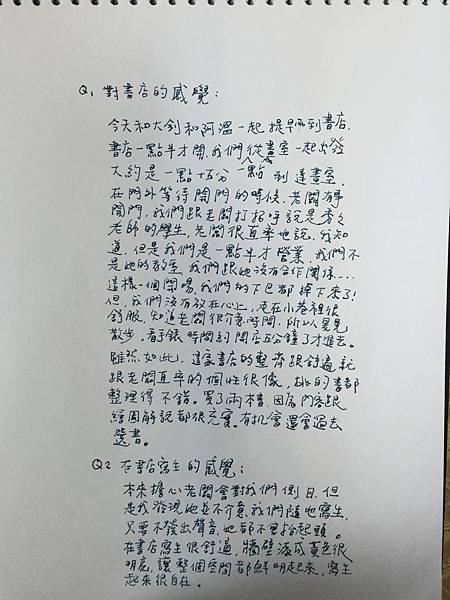 Q1 對書店的感覺：
今天和大創和阿溫一起提早到書店，
書店一點半才開，我們從畫室一起出發
大約是一點十五分一點到達畫室，
在門外等待開門的時候，老闆有事
開門，我們跟老闆打招呼說是
老師的學生，老闆很直率地說，我知
道，但是我們是一點半才營業，我們不
是她的教室，我們跟她沒有合作關係...
這樣一個開場，我們的下巴都掉下來了！
但，我們沒有放在心上，走在小巷裡很
舒服，知道老闆很介意時間，所以晃晃
散步，看手錶時間到開店五分鐘了才進去。
雖然如此，這家書店的整齊跟舒適就
跟老闆直率的個性很像，挑的書都
整理得不錯。買了兩本書，因為內容跟
繪圖解說都很充實。有机會還會過去
選書。
Q2 在書店寫生的感覺：
本來擔心老闆會對我們側目，但
是我發現她並不介意我們隨地寫生，
只要不發出聲音，她都不會抬起頭。
在書店寫生很舒適，牆壁漆成黃色很
明亮，讓整個空間都鮮明起來，寫生
起來很自在。